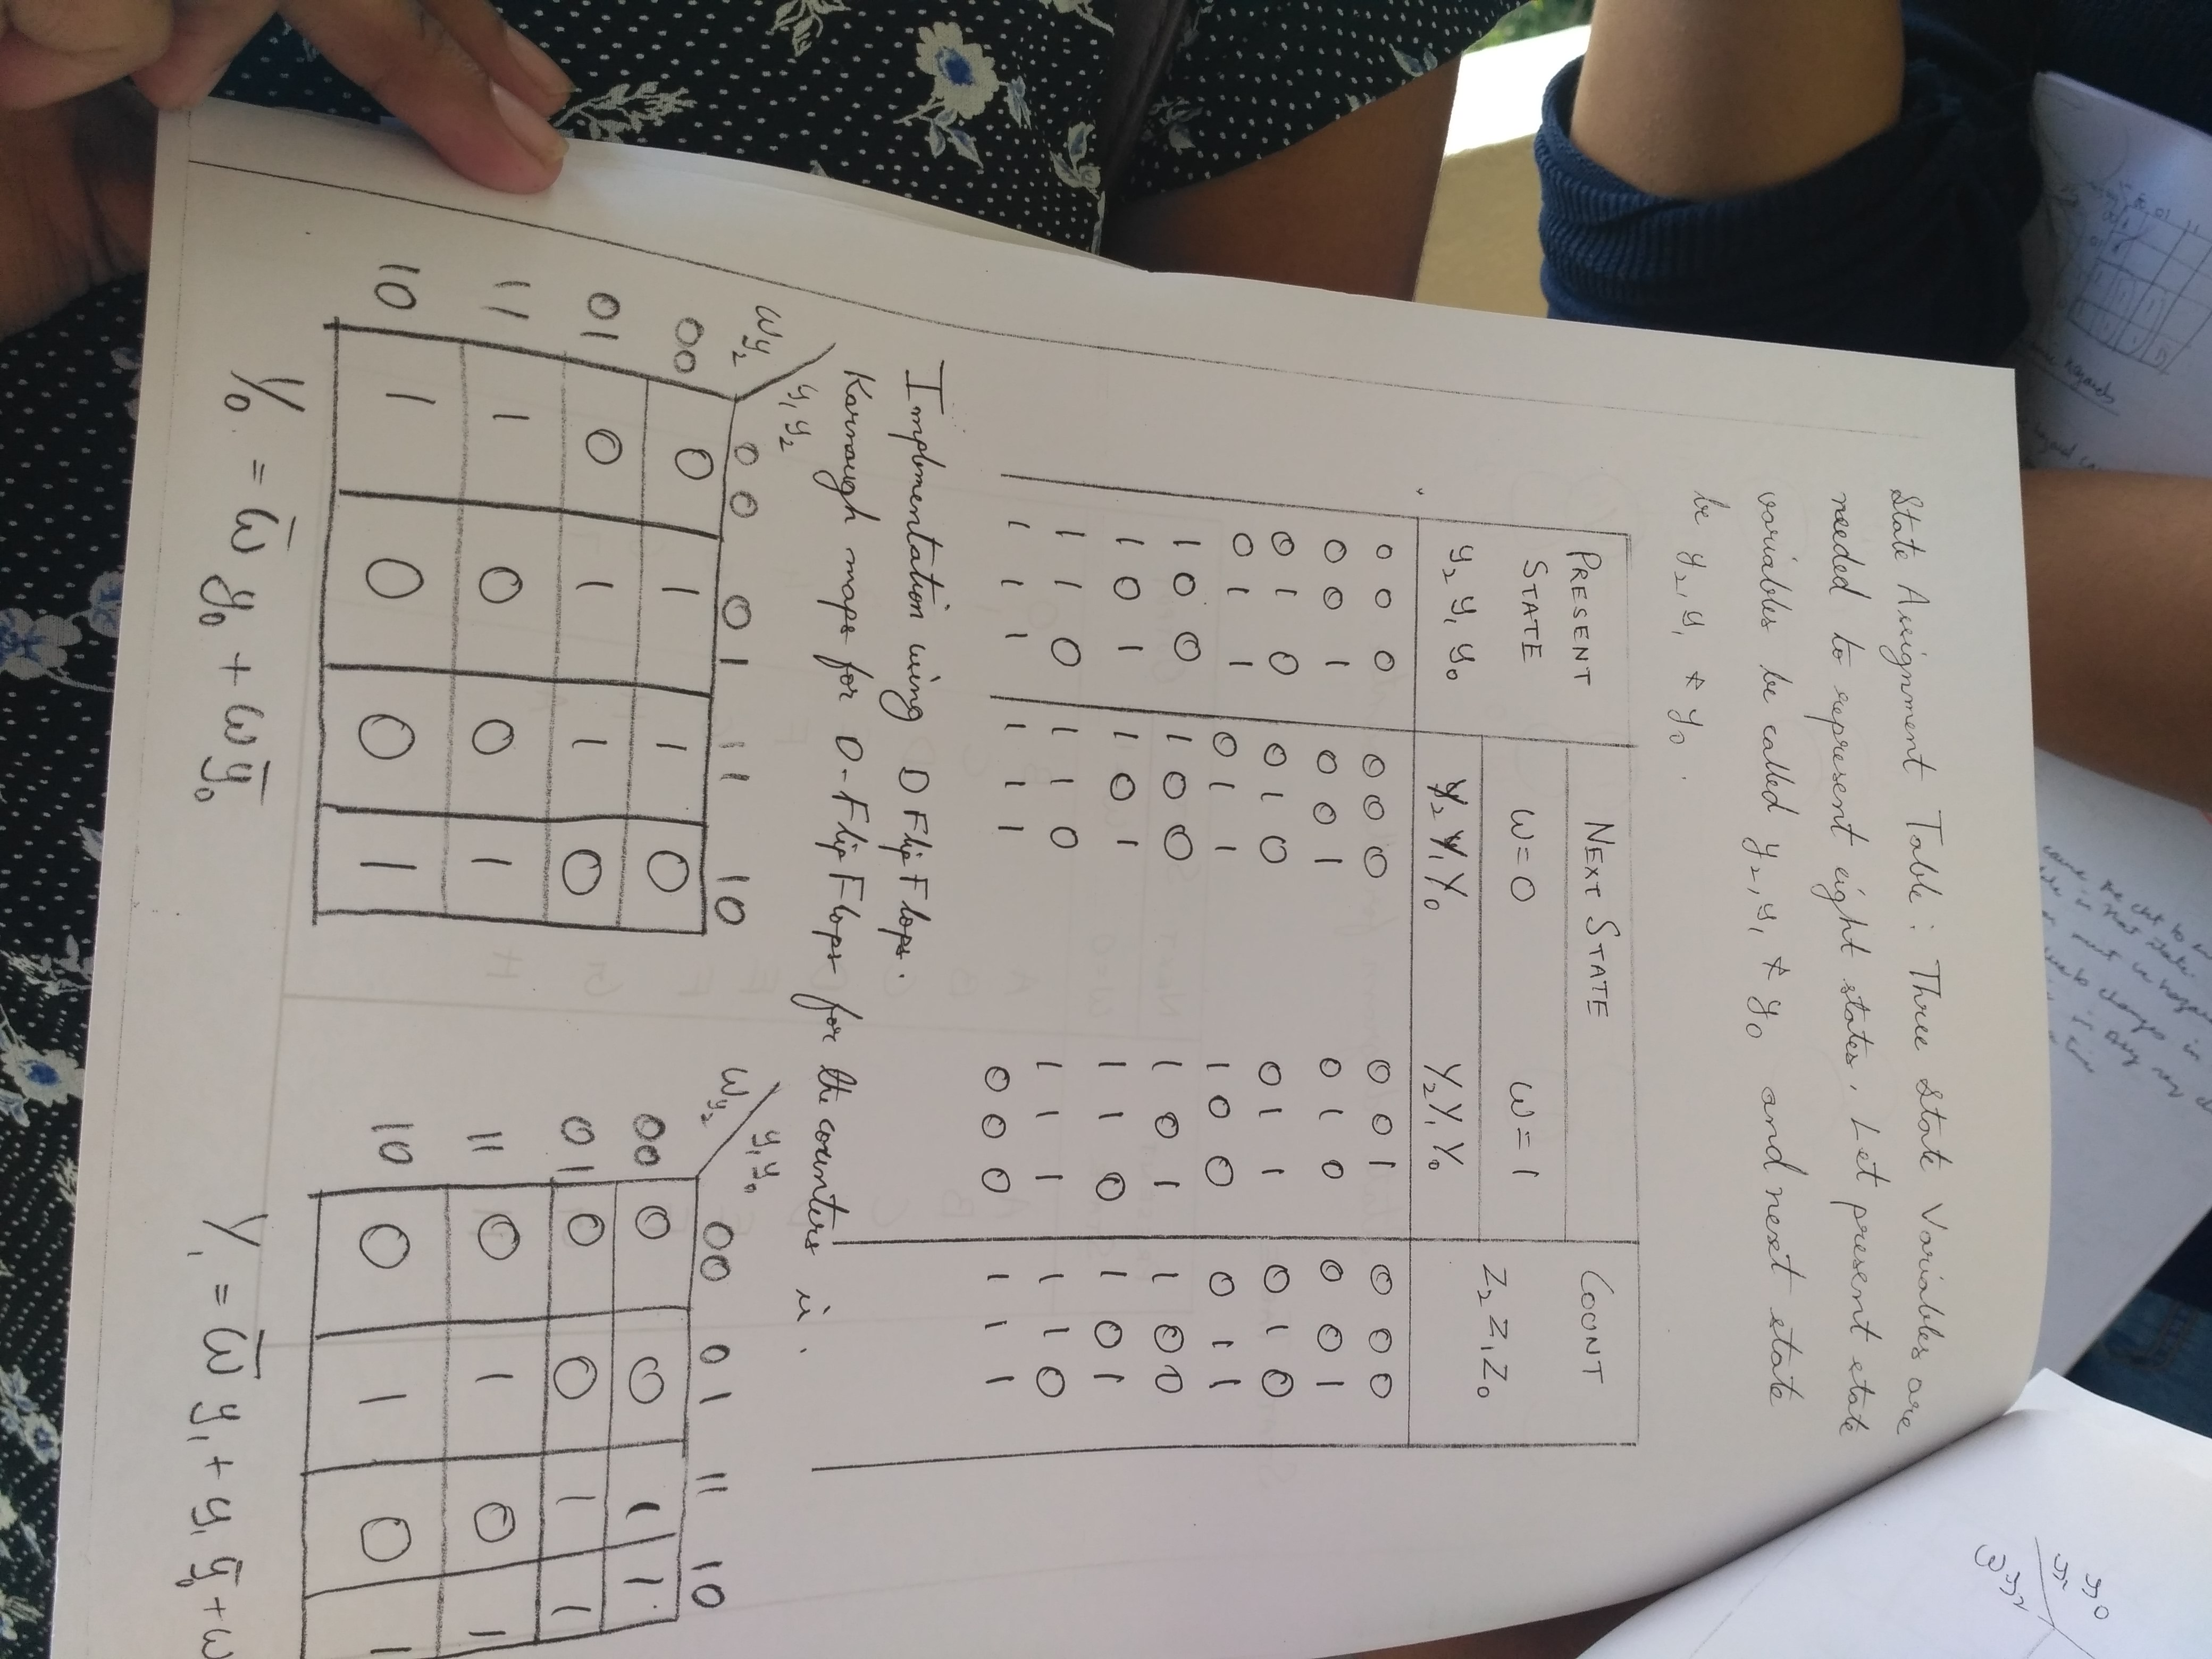 State Assignment Table : Three State Variables are
needed to represent eight states. Let present state
variables be called y₂, y₁ & y₀ and next state
be y₂, y₁ & y₀.
PRESENT STATE NEXT STATE COUNT
W=0 W=1 Z₂ Z₁ Z₀
y₂ y₁ y₀ Y₂ Y₁ Y₀ Y₂ Y₁ Y₀
0 0 0 0 0 0 0 0 1 0 0 0
0 0 1 0 0 1 0 1 0 0 0 1
0 1 0 0 1 0 0 1 1 0 1 0
0 1 1 0 1 1 1 0 0 0 1 1
1 0 0 1 0 0 1 0 1 1 0 0
1 0 1 1 0 1 1 1 0 1 0 1
1 1 0 1 1 0 1 1 1 1 1 0
1 1 1 1 1 1 0 0 0 1 1 1
Implementation using D Flip Flops.
Karnough maps for D-Flip Flops for the counters is.
wy₂ y₁y₂
00 01 11 10
00 0 1 1 0
01 0 1 1 0
11 1 0 0 1
10 1 0 0 1
Y₀ = w̅ y₀ + w y̅₀
wy₂ y₁y₀
00 01 11 10
00 0 0 1 1
01 0 0 1 1
11 0 1 0 1
10 0 1 0 1
Y₁ = w̅ y₁ + y₁ y̅₀ + w